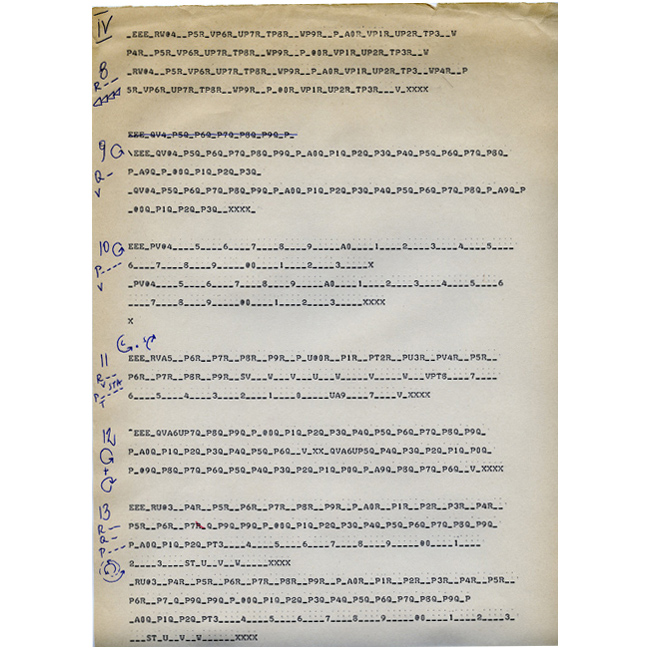 IV
_EEE_RW@4__P5R_VP6R_UP7R_TP8R__WP9R__P_A0R_VP1R_UP2R_TP3__W
P4R__P5R_VP6R_UP7R_TP8R__WP9R__P_@0R_VP1R_UP2R_TP3R__W
8
_RW@4__P5R_VP6R_UP7R_TP8R__WP9R__P_A0R_VP1R_UP2R_TP3__WP4R__P
R
5R_VP6R_UP7R_TP8R__WP9R__P_@0R_VP1R_UP2R_TP3R___V_XXXX
EEE_QV4_P5Q_P6Q_P7Q_P8Q_P9Q_P_
9
\EEE_QV@4_P5Q_P6Q_P7Q_P8Q_P9Q_P_A0Q_P1Q_P2Q_P3Q_P4Q_P5Q_P6Q_P7Q_P8Q_
Q
P_A9Q_P_@0Q_P1Q_P2Q_P3Q_
V
_QV@4_P5Q_P6Q_P7Q_P8Q_P9Q_P_A0Q_P1Q_P2Q_P3Q_P4Q_P5Q_P6Q_P7Q_P8Q_P_A9Q_P
_@0Q_P1Q_P2Q_P3Q__XXXX_
10
EEE_PV@4____5____6____7____8____9_____A0____1____2____3____4____5____
P
6____7____8____9_____@0____1____2____3_____X
V
_PV@4____5____6____7____8____9_____A0____1____2____3____4____5____6
____7____8____9_____@0____1____2____3_____XXXX
X
11
EEE_RVA5__P6R__P7R__P8R__P9R__P_U@0R__P1R__PT2R__PU3R__PV4R__P5R__
R
V STA
P6R__P7R__P8R__P9R__SV___W___V___U___W_____V_____W___VPT8____7____
P
T
6____5____4____3____2____1____0_____UA9____7____V_XXXX
12
^EEE_QVA6UP7Q_P8Q_P9Q_P_@0Q_P1Q_P2Q_P3Q_P4Q_P5Q_P6Q_P7Q_P8Q_P9Q_
P_A0Q_P1Q_P2Q_P3Q_P4Q_P5Q_P6Q__V_XX_QVA6UP5Q_P4Q_P3Q_P2Q_P1Q_P0Q_
+
P_@9Q_P8Q_P7Q_P6Q_P5Q_P4Q_P3Q_P2Q_P1Q_P0Q_P_A9Q_P8Q_P7Q_P6Q__V_XXXX
13
EEE_RU@3__P4R__P5R__P6R__P7R__P8R__P9R__P_A0R__P1R__P2R__P3R__P4R__
R
P5R__P6R__P7R_Q_P9Q_P9Q_P_@0Q_P1Q_P2Q_P3Q_P4Q_P5Q_P6Q_P7Q_P8Q_P9Q_
Q
P
P_A0Q_P1Q_P2Q_PT3____4____5____6____7____8____9_____@0____1____
2____3____ST_U__V__W_____XXXX
_RU@3__P4R__P5R__P6R__P7R__P8R__P9R__P_A0R__P1R__P2R__P3R__P4R__P5R__
P6R__P7_Q_P9Q_P9Q_P_@0Q_P1Q_P2Q_P3Q_P4Q_P5Q_P6Q_P7Q_P8Q_P9Q_P
_A0Q_P1Q_P2Q_PT3____4____5____6____7____8____9_____@0____1____2____3_
___ST_U__V__W______XXXX